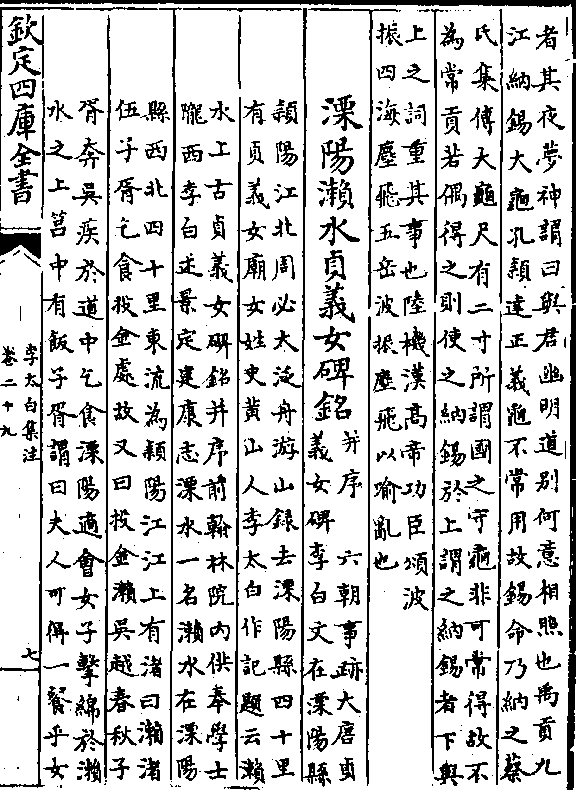 者其夜夢神謂曰與君幽明道別何意相照也禹貢九
江納錫大龜孔頴達正義龜不常用故錫命乃納之蔡
氏集傳大龜尺有二寸所謂國之守龜非可常得故不
為常貢若偶得之則使之納錫於上謂之納錫者下與
上之詞重其事也陸機漢高帝功臣頌波
振四海塵飛五岳波振塵飛以喻亂也
溧陽瀬水貞義女碑銘并序 六朝事跡大唐貞
義女碑李白文在溧陽縣
頴陽江北周必大泛舟游山録去溧陽縣四十里
有貞義女廟女姓史黄山人李太白作記題云瀬
水上古貞義女碑銘并序前翰林院内供奉學士
隴西李白述景定建康志溧水一名瀬水在溧陽
縣西北四十里東流為頴陽江江上有渚曰瀬渚
伍子胥乞食投金處故又曰投金瀬吳越春秋子
胥奔吳疾於道中乞食溧陽適會女子擊綿於瀬
水之上筥中有飯子胥謂曰夫人可得一餐乎女
欽定四庫全書
李太白集注
卷二十九
七